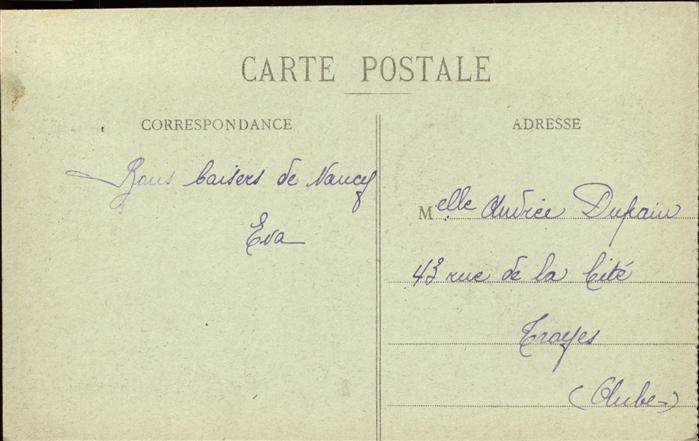 CARTE POSTALE
CORRESPONDANCE
Bons baisers de Nancy
Eva
ADRESSE
Melle Dupain
43 rue de la Cité
Troyes
(Aube)